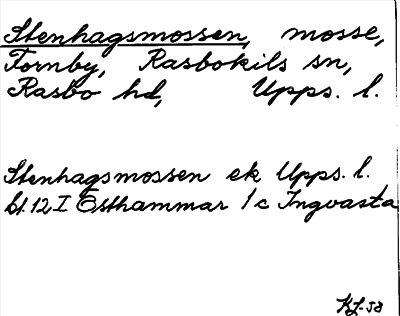 Stenhagsmossen, mosse,
Tornby, Rasbokils sn,
Rasbo hd, Upps. l.
Stenhagsmossen ek Upps. l.
bl. 12 I Östhammar 1c Ingvasta
KL-58